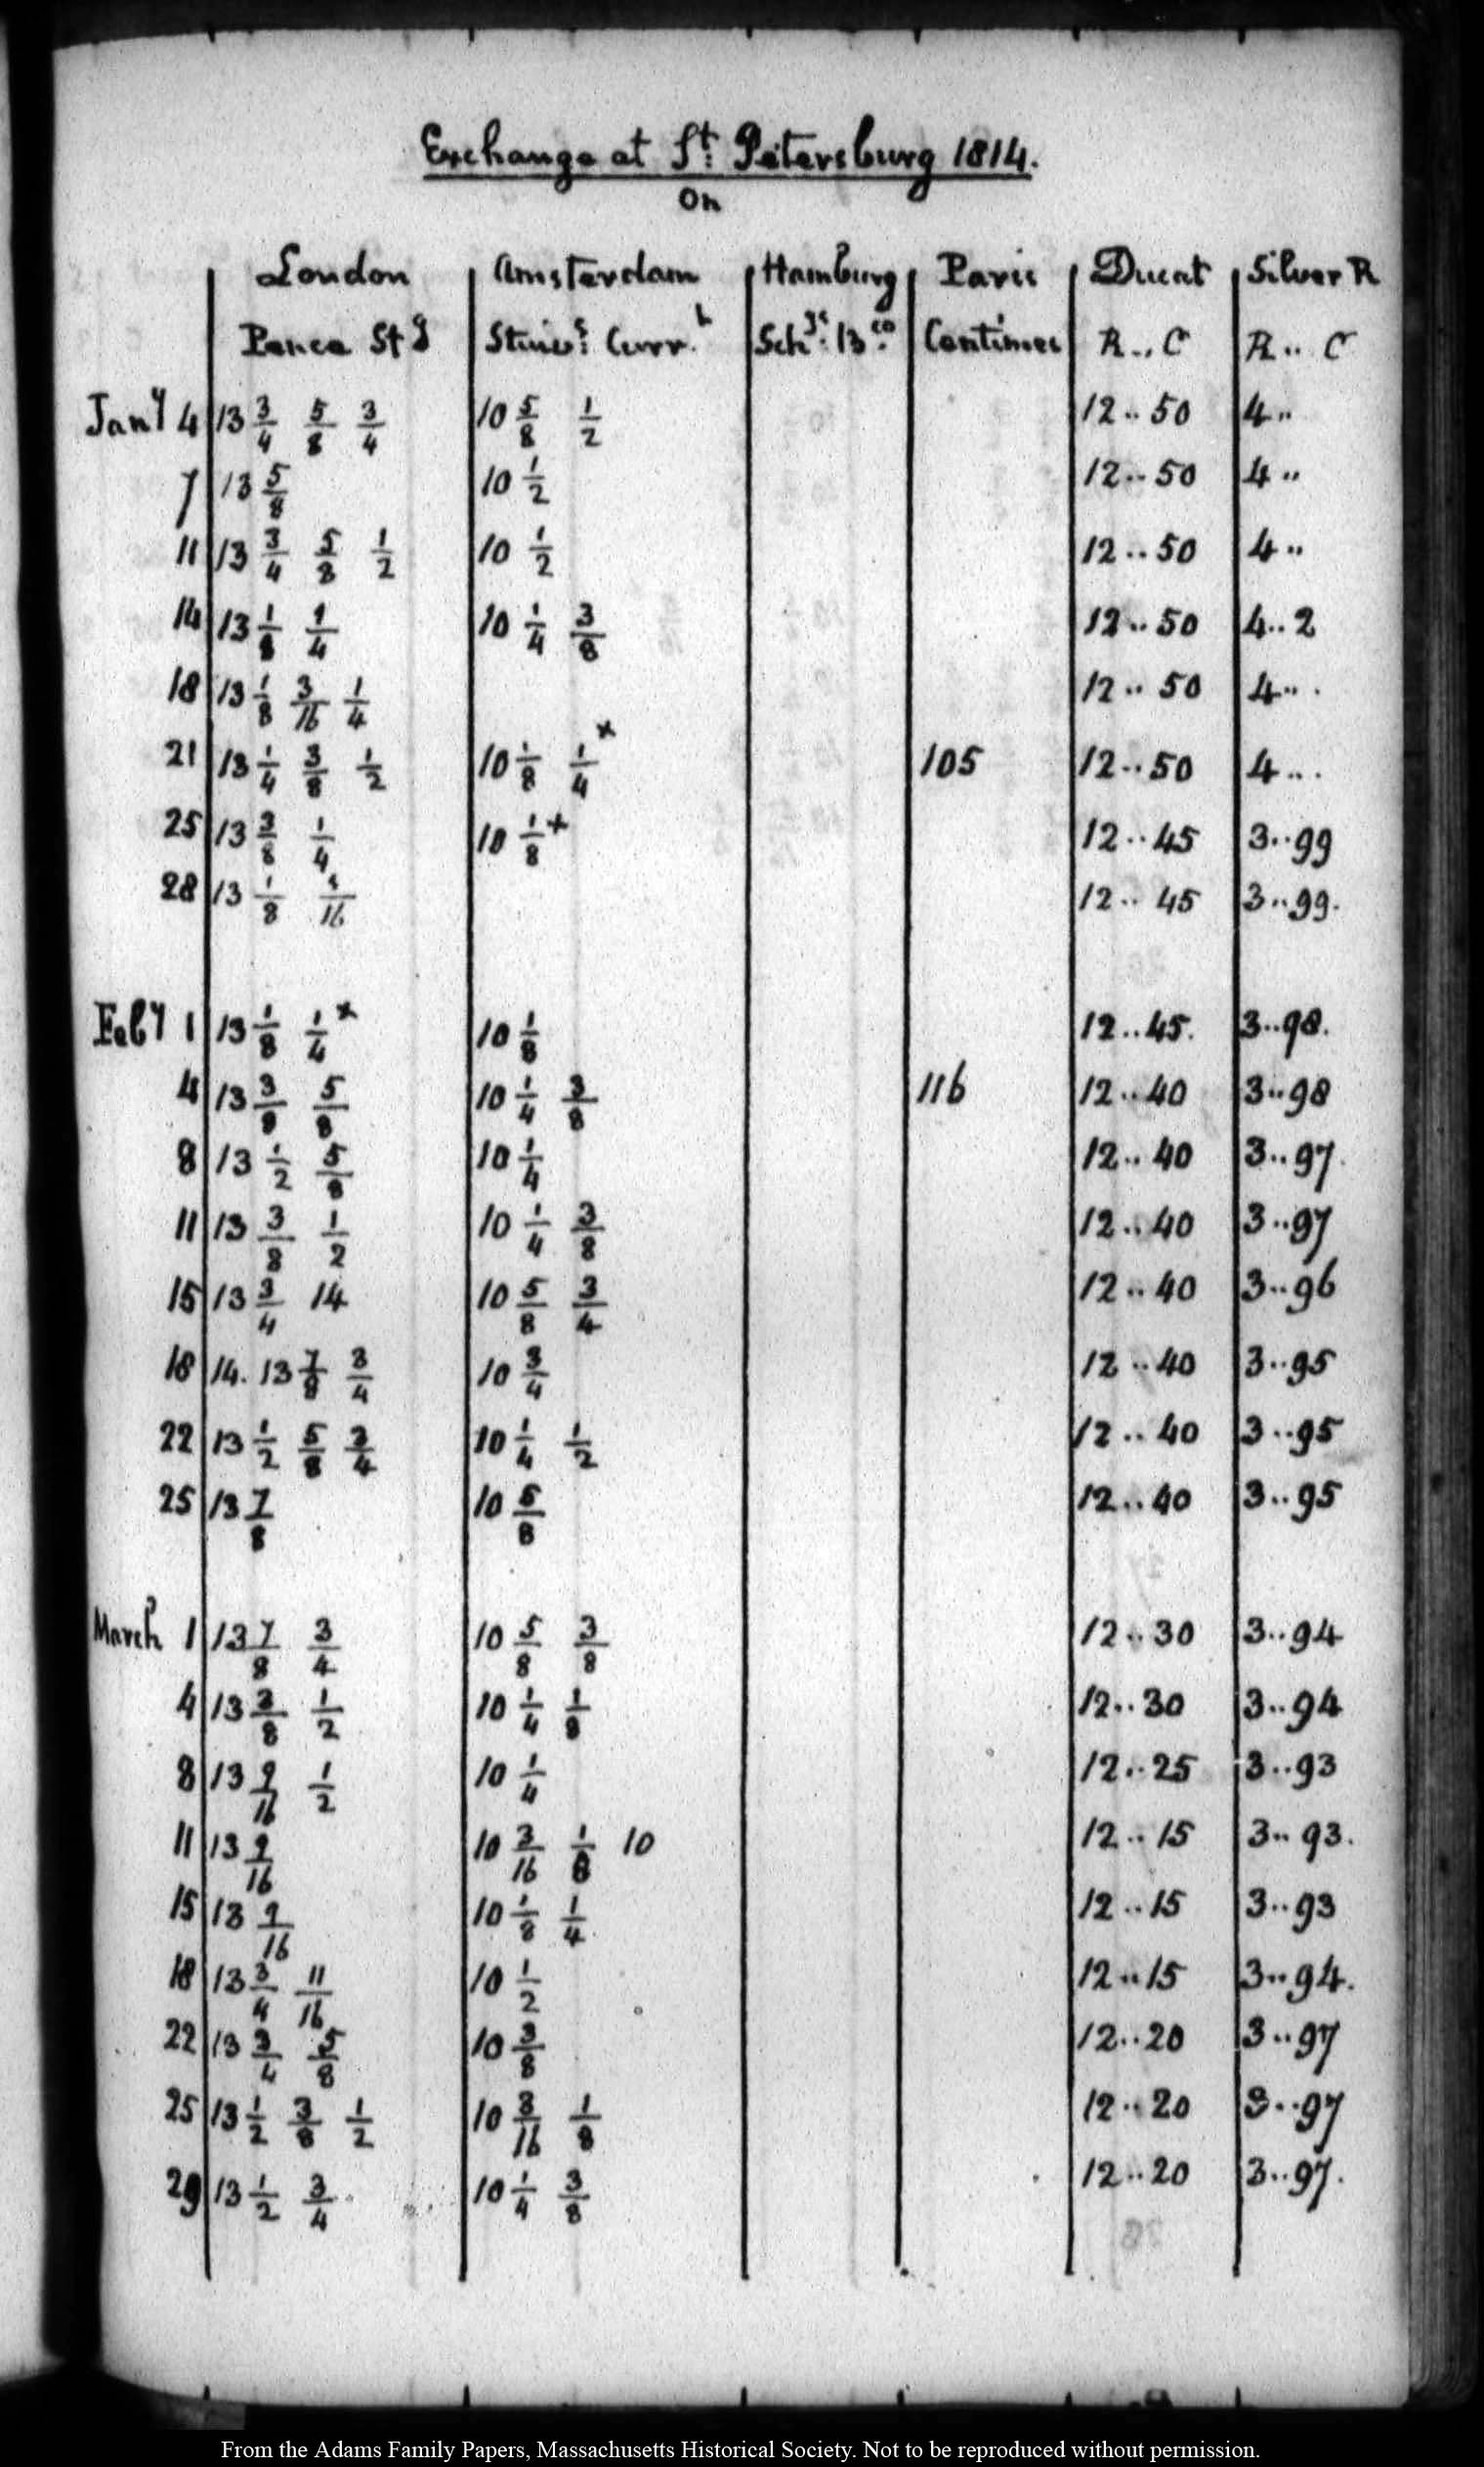 Exchange at St: Petersburg 1814.
On
London Amsterdam Hamburg Paris Ducat Silver R
Pence Stg Stivs: Curr.t Schgs: Bco: Centimes R..C R..C
Jany 4 13 3/4 5/8 3/4 10 5/8 1/2 12..50 4..
7 13 5/8 10 1/2 12..50 4..
11 13 3/4 5/8 1/2 10 1/2 12..50 4..
14 13 1/8 1/4 10 1/4 3/8 12..50 4..2
18 13 1/8 3/16 1/4 12..50 4...
21 13 1/4 3/8 1/2 10 1/8 1/4 x 105 12..50 4...
25 13 3/8 1/4 10 1/8 + 12..45 3..99
28 13 1/8 1/16 12..45 3..99.
Feby 1 13 1/8 1/4 x 10 1/8 12..45. 3..98.
4 13 3/8 5/8 10 1/4 3/8 116 12..40 3..98
8 13 1/2 5/8 10 1/4 12..40 3..97.
11 13 3/8 1/2 10 1/4 3/8 12..40 3..97
15 13 3/4 14 10 5/8 3/4 12..40 3..96
18 14. 13 7/8 3/4 10 3/4 12..40 3..95
22 13 1/2 5/8 3/4 10 1/4 1/2 12..40 3..95
25 13 7/8 10 5/8 12..40 3..95
March 1 13 7/8 3/4 10 5/8 3/8 12..30 3..94
4 13 3/8 1/2 10 1/4 1/8 12..30 3..94
8 13 9/16 1/2 10 1/4 12..25 3..93
11 13 9/16 10 3/16 1/8 10 12..15 3..93.
15 13 9/16 10 1/8 1/4 12..15 3..93
18 13 3/4 11/16 10 1/2 12..15 3..94.
22 13 3/4 5/8 10 3/8 12..20 3..97
25 13 1/2 3/8 1/2 10 3/16 1/8 12..20 3..97
29 13 1/2 3/4 10 1/4 3/8 12..20 3..97.
From the Adams Family Papers, Massachusetts Historical Society. Not to be reproduced without permission.